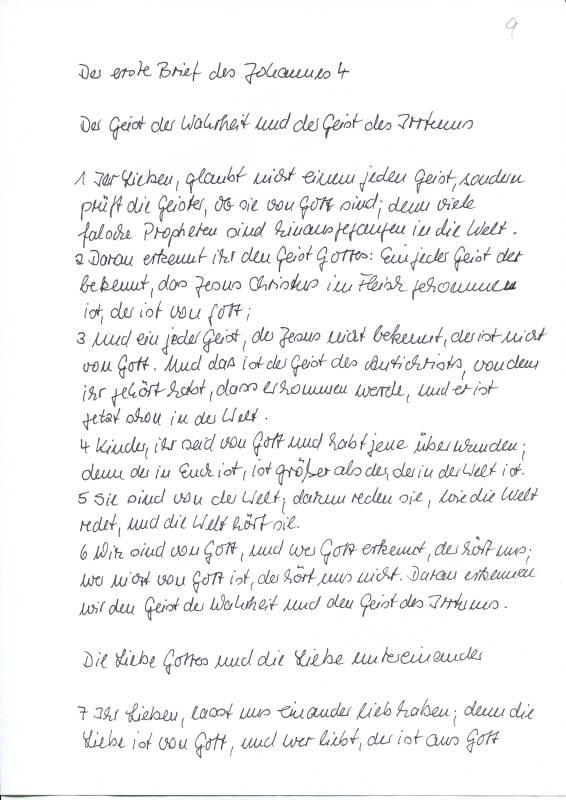 9
Der erste Brief des Johannes 4
Der Geist der Wahrheit und der Geist des Irrtums
1 Ihr Lieben, glaubt nicht einem jeden Geist, sondern
prüft die Geister, ob sie von Gott sind; denn viele
falsche Propheten sind hinausgegangen in die Welt.
2 Daran erkennt ihr den Geist Gottes: Ein jeder Geist der
bekennt, das Jesus Christus im Fleisch gekommen
ist, der ist von Gott;
3 und ein jeder Geist, der Jesus nicht bekennt, der ist nicht
von Gott. Und das ist der Geist des Antichrists, von dem
ihr gehört habt, dass er kommen werde, und er ist
jetzt schon in der Welt.
4 Kinder, ihr seid von Gott und habt jene überwunden;
denn der in Euch ist, ist größer als der, der in der Welt ist.
5 Sie sind von der Welt; darum reden sie, wie die Welt
redet, und die Welt hört sie.
6 Wir sind von Gott, und wer Gott erkennt, der hört uns;
wer nicht von Gott ist, der hört uns nicht. Daran erkennen
wir den Geist der Wahrheit und den Geist des Irrtums.
Die Liebe Gottes und die Liebe untereinander
7 Ihr Lieben, lasst uns einander lieb haben; denn die
Liebe ist von Gott, und wer liebt, der ist aus Gott